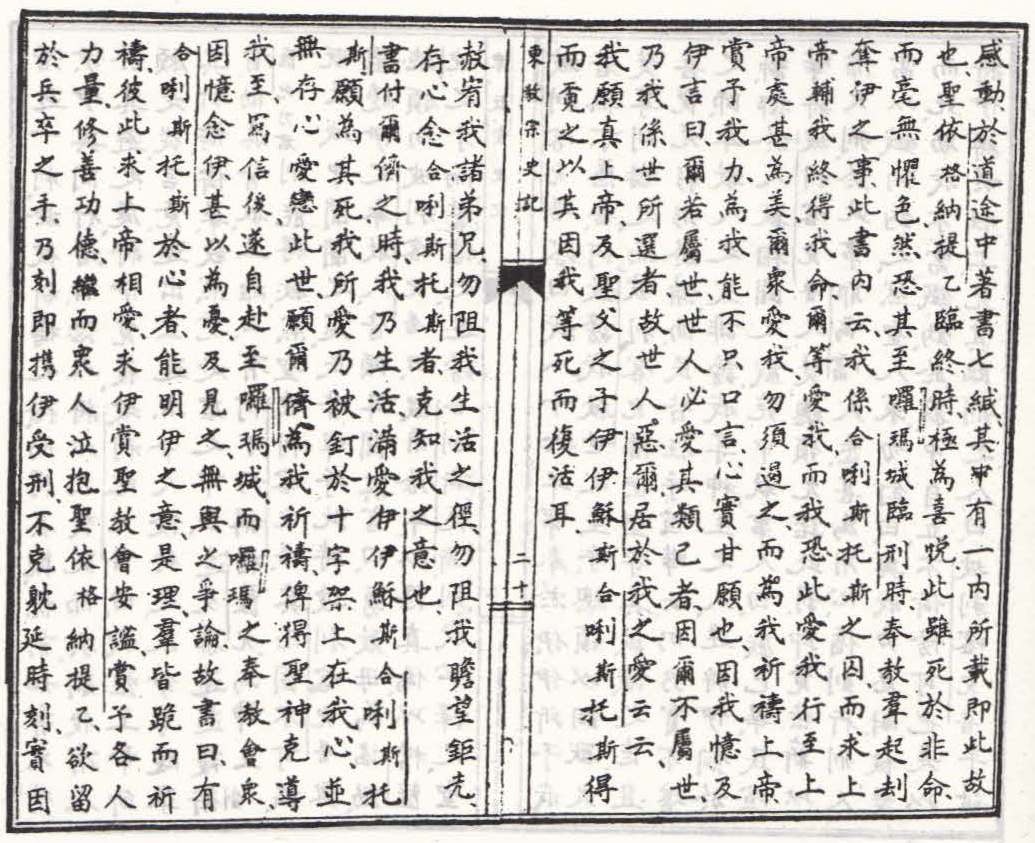 感動、於道途中著書七緘、其中有一內所載即此故
也、聖依格納提乙臨終時、極為喜悅、此雖死於非命、
而毫無懼色、然恐其至囉瑪城臨刑時、奉教羣起刦
奪伊之事、此書內云、我係合唎斯托斯之囚、而求上
帝輔我終得我命、爾等愛我、而我恐此愛我行至上
帝處甚為美、爾衆愛我、勿須過之、而為我祈禱上帝、
賞予我力、為我能不只口言、心實甘願也、因我憶及
伊言曰、爾若屬世、世人必愛其類己者、因爾不屬世、
乃我係世所選者、故世人惡爾、居於我之愛云云、
我願真上帝、及聖父之子伊伊穌斯合唎斯托斯得
而覔之、以其因我等死而復活耳、
東教宗史記
二十
赦宥我諸弟兄、勿阻我生活之徑、勿阻我瞻望鉅光、
存心念合唎斯托斯者、克知我之意也、
書付爾儕之時、我乃生活、滿愛伊伊穌斯合唎斯托
斯、願為其死、我所愛乃被釘於十字架上、在我心、並
無存心愛戀此世、願爾儕為我祈禱、俾得聖神克導
我至、寫信後、遂自赴至囉瑪城、而囉瑪之奉教會衆、
因憶念伊、甚以為憂、及見之、無與之爭論、故書曰、有
合唎斯托斯於心者、能明伊之意、是理、羣皆跪而祈
禱、彼此求上帝相愛、求伊賞聖教會安謐、賞予各人
力量、修善功德、繼而衆人泣抱聖依格納提乙、欲留
於兵卒之手、乃刻即携伊受刑、不克躭延時刻、實因